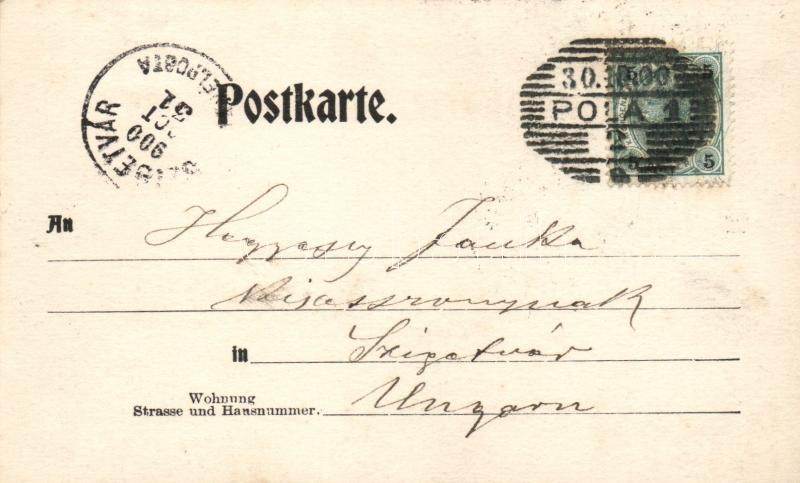 SZIGETVÁR
900
OCT
31
Postkarte.
30. 00
POLA 1
5 5
5 5
An Janka
kisasszonynak
in Szigetvár
Wohnung
Strasse und Hausnummer. Ungarn